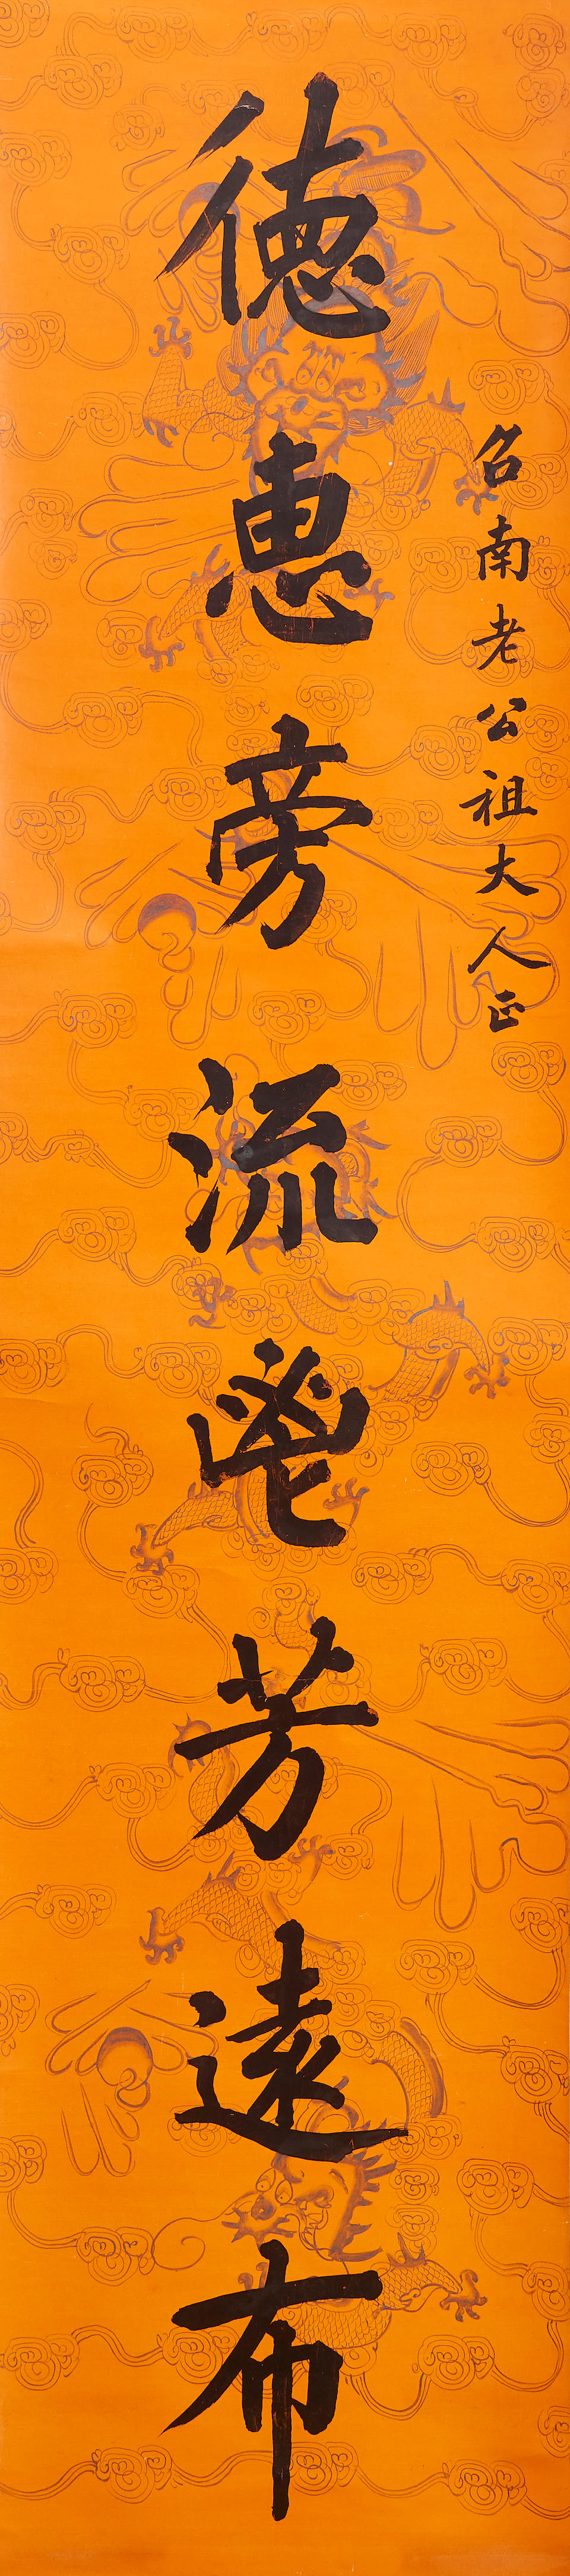 名南老公祖大人正
德惠旁流鬯芳遠布